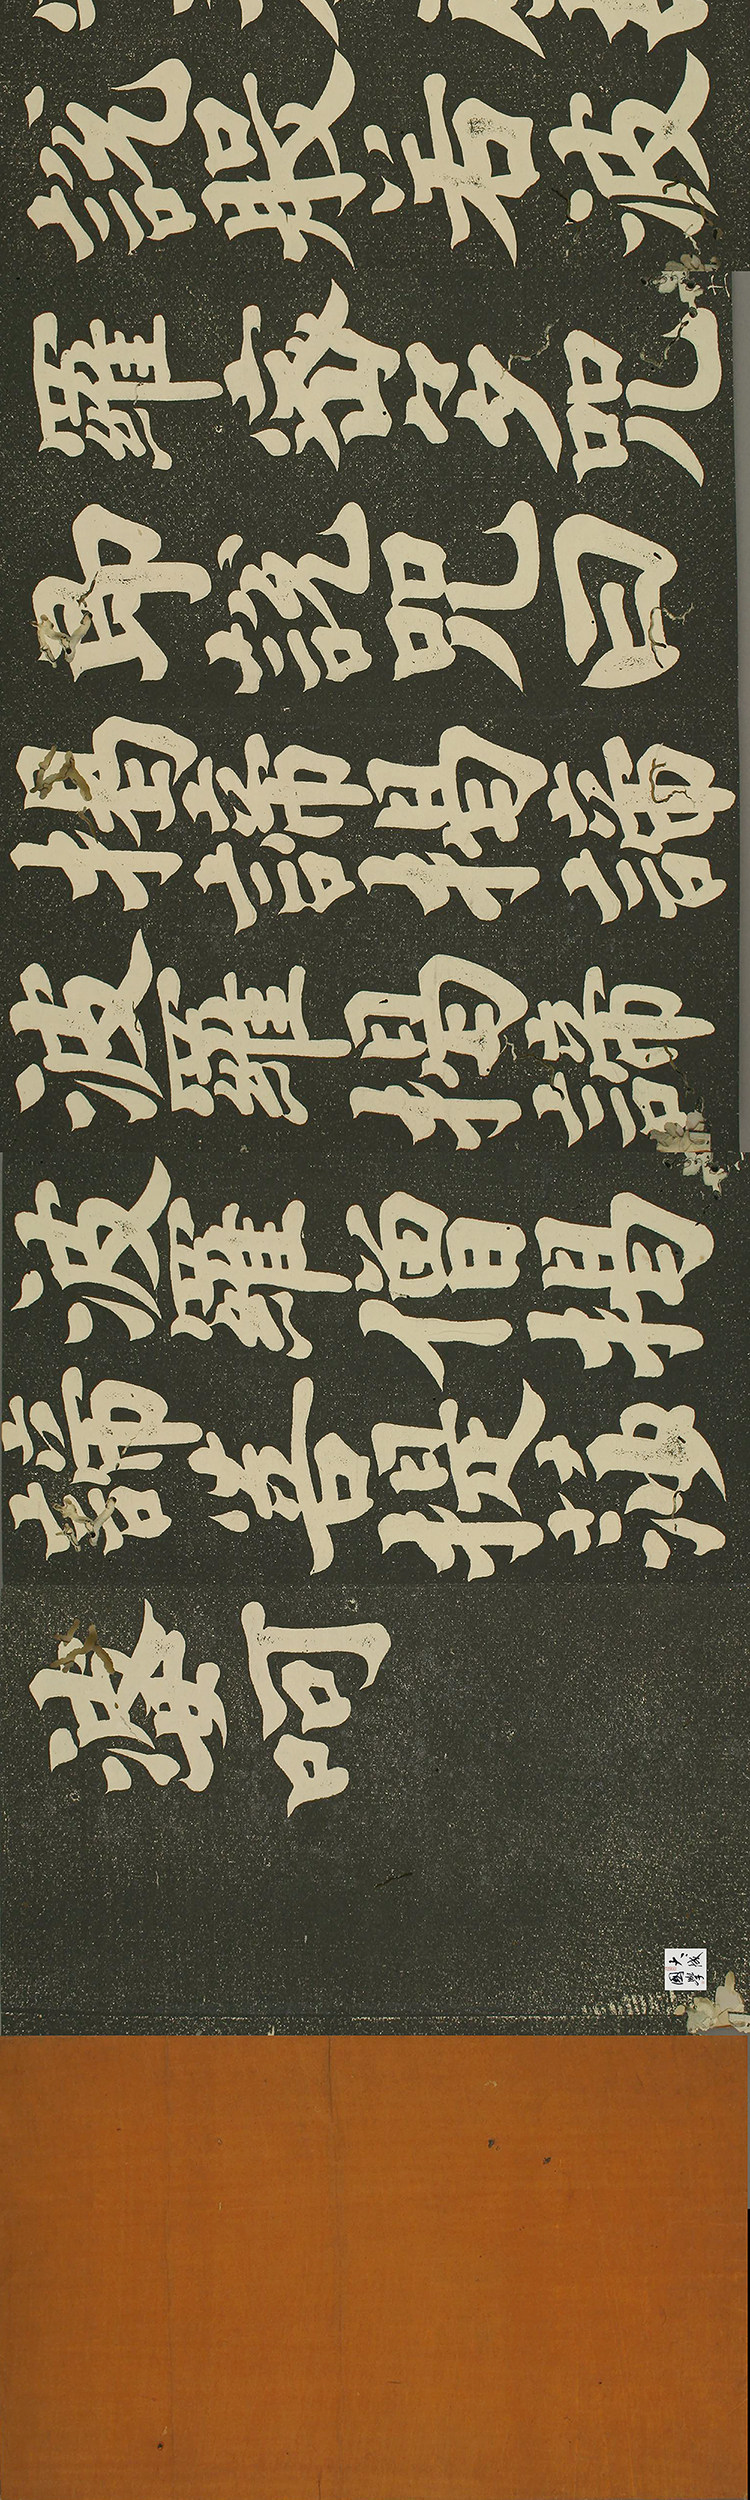 說般若波
羅蜜多咒
即說咒曰
揭諦揭諦
波羅揭諦
波羅僧揭
諦菩提莎
婆呵